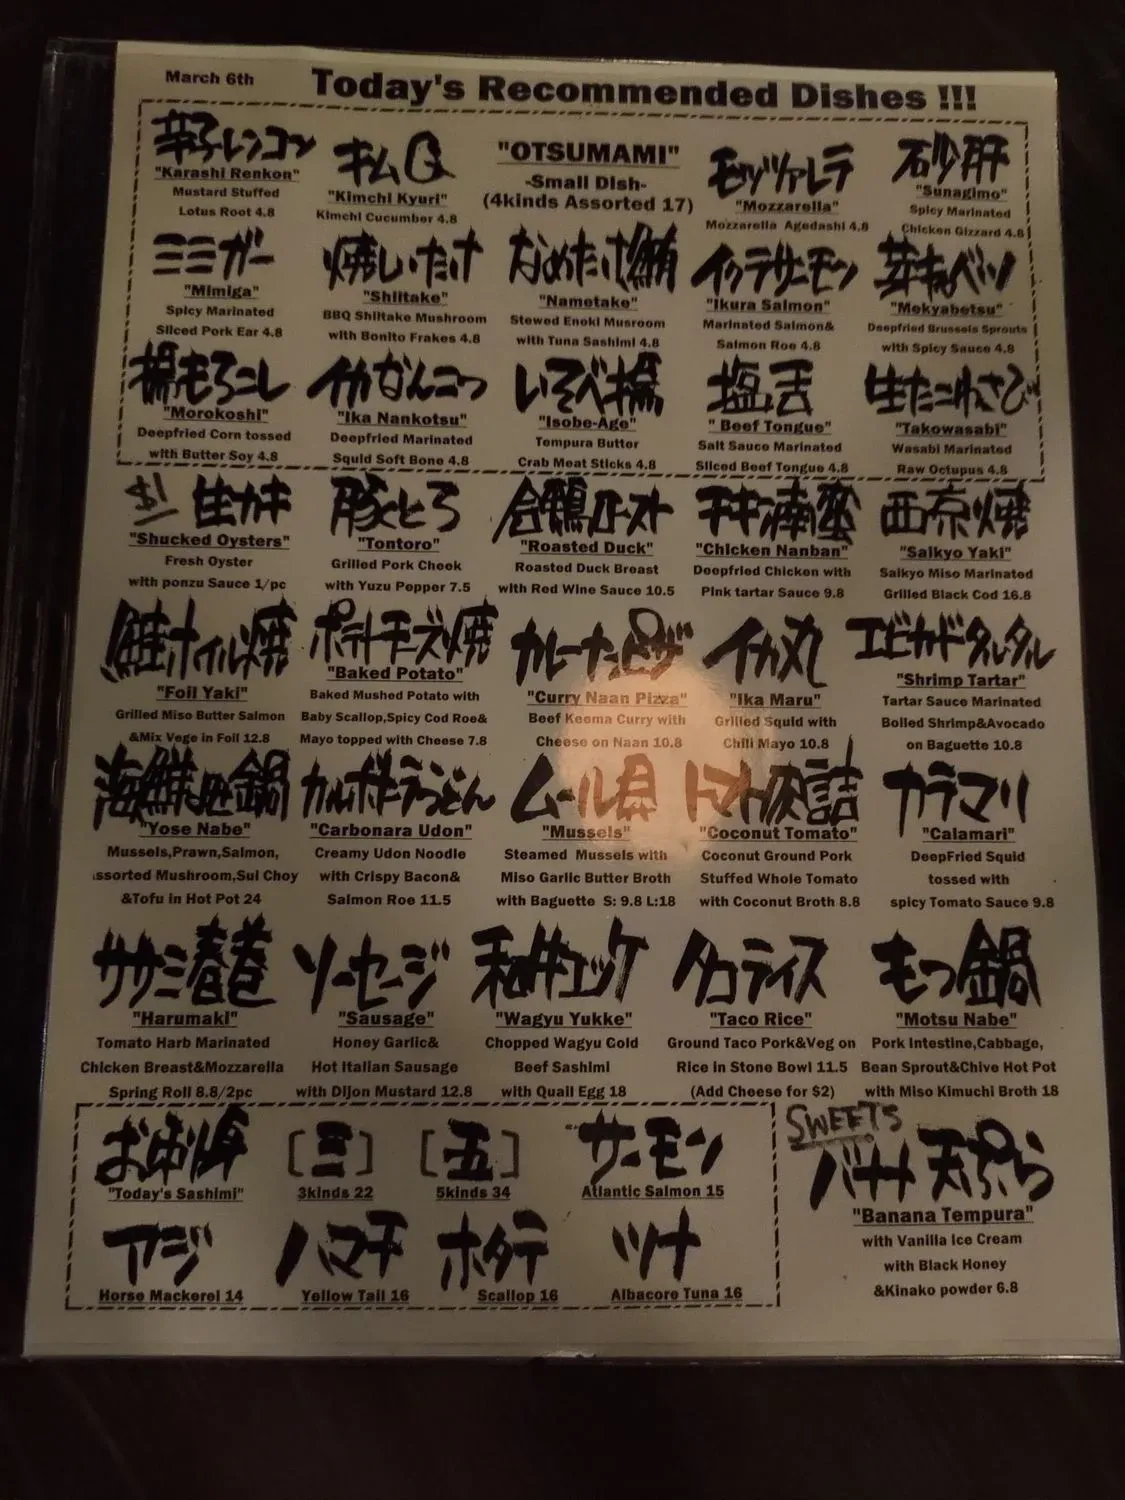 March 6th
Today's Recommended Dishes !!!
辛子レンコン
"Karashi Renkon"
Mustard Stuffed
Lotus Root 4.8
キムQ
"Kimchi Kyuri"
Kimchi Cucumber 4.8
"OTSUMAMI"
-Small Dish-
(4kinds Assorted 17)
モッツァレラ
"Mozzarella"
Mozzarella Agedashi 4.8
石少肝
"Sunagimo"
Spicy Marinated
Chicken Gizzard 4.8
ミミガー
"Mimiga"
Spicy Marinated
Sliced Pork Ear 4.8
焼しいたけ
"Shiitake"
BBQ Shiitake Mushroom
with Bonito Frakes 4.8
なめたけ鮪
"Nametake"
Stewed Enoki Musroom
with Tuna Sashimi 4.8
イクラサーモン
"Ikura Salmon"
Marinated Salmon&
Salmon Roe 4.8
芽キャベツ
"Mekyabetsu"
Deepfried Brussels Sprouts
with Spicy Sauce 4.8
揚もろこし
"Morokoshi"
Deepfried Corn tossed
with Butter Soy 4.8
イカなんこつ
"Ika Nankotsu"
Deepfried Marinated
Squid Soft Bone 4.8
いそべ揚
"Isobe-Age"
Tempura Butter
Crab Meat Sticks 4.8
塩舌
" Beef Tongue"
Salt Sauce Marinated
Sliced Beef Tongue 4.8
生たこわさび
"Takowasabi"
Wasabi Marinated
Raw Octupus 4.8
$1 生カキ
"Shucked Oysters"
Fresh Oyster
with ponzu Sauce 1/pc
豚とろ
"Tontoro"
Grilled Pork Cheek
with Yuzu Pepper 7.5
合鴨ロースト
"Roasted Duck"
Roasted Duck Breast
with Red Wine Sauce 10.5
チキン南蛮
"Chicken Nanban"
Deepfried Chicken with
Pink tartar Sauce 9.8
西京焼
"Saikyo Yaki"
Saikyo Miso Marinated
Grilled Black Cod 16.8
鮭ホイル焼
"Foil Yaki"
Grilled Miso Butter Salmon
&Mix Vege in Foil 12.8
ポテトチーズ焼
"Baked Potato"
Baked Mushed Potato with
Baby Scallop,Spicy Cod Roe&
Mayo topped with Cheese 7.8
カレーナンピザ
"Curry Naan Pizza"
Beef Keema Curry with
Cheese on Naan 10.8
イカ丸
"Ika Maru"
Grilled Squid with
Chili Mayo 10.8
エビアボカドタルタル
"Shrimp Tartar"
Tartar Sauce Marinated
Boiled Shrimp&Avocado
on Baguette 10.8
海鮮寄鍋
"Yose Nabe"
Mussels,Prawn,Salmon,
assorted Mushroom,Sui Choy
&Tofu in Hot Pot 24
カルボナーラうどん
"Carbonara Udon"
Creamy Udon Noodle
with Crispy Bacon&
Salmon Roe 11.5
ムール貝
"Mussels"
Steamed Mussels with
Miso Garlic Butter Broth
with Baguette S: 9.8 L:18
トマト肉詰
"Coconut Tomato"
Coconut Ground Pork
Stuffed Whole Tomato
with Coconut Broth 8.8
カラマリ
"Calamari"
DeepFried Squid
tossed with
spicy Tomato Sauce 9.8
ササミ春巻
"Harumaki"
Tomato Harb Marinated
Chicken Breast&Mozzarella
Spring Roll 8.8/2pc
ソーセージ
"Sausage"
Honey Garlic&
Hot Italian Sausage
with Dijon Mustard 12.8
和牛ユッケ
"Wagyu Yukke"
Chopped Wagyu Gold
Beef Sashimi
with Quail Egg 18
タコライス
"Taco Rice"
Ground Taco Pork&Veg on
Rice in Stone Bowl 11.5
(Add Cheese for $2)
もつ鍋
"Motsu Nabe"
Pork Intestine,Cabbage,
Bean Sprout&Chive Hot Pot
with Miso Kimuchi Broth 18
お刺身
"Today's Sashimi"
[三]
3kinds 22
[五]
5kinds 34
サーモン
Atlantic Salmon 15
アジ
Horse Mackerel 14
ハマチ
Yellow Tail 16
ホタテ
Scallop 16
ツナ
Albacore Tuna 16
SWEETS
バナナ天ぷら
"Banana Tempura"
with Vanilla Ice Cream
with Black Honey
&Kinako powder 6.8